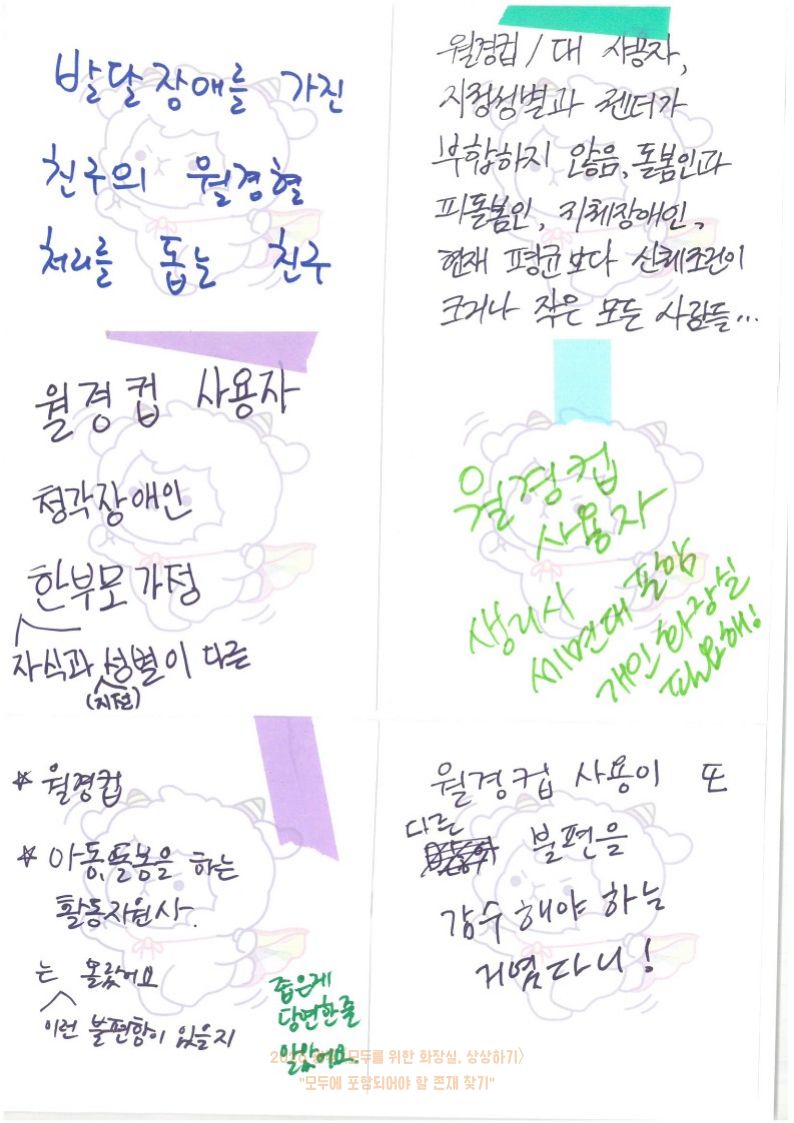 발달장애를 가진
친구의 월경혈
처리를 돕는 친구
월경컵 / 대 사용자,
지정성별과 젠더가
부합하지 않음, 돌봄인과
피돌봄인, 지체장애인,
현재 평균보다 신체조건이
크거나 작은 모든 사람들...
월경컵 사용자
청각장애인
한부모가정
자식과 성별이 다른
(지정)
월경컵
사용자
생리시
세면대 포함
개인 화장실
필요해!
* 월경컵
* 아동, 돌봄을 하는
활동지원사.
는 몰랐어요
이런 불편함이 있을지
좁은게
당연한줄
알았어요.
월경컵 사용이 또
다른 불편을
감수해야 하는
거였다니!
모두를 위한 화장실, 상상하기>
"모두에 포함되어야 할 존재 찾기"